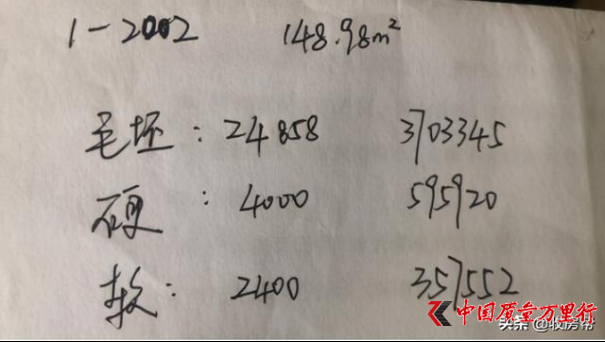 1-2002 148.98m²
毛坯：24858 3703345
硬：4000 595920
软：2400 357552
中国质量万里行
头条 @收房帮